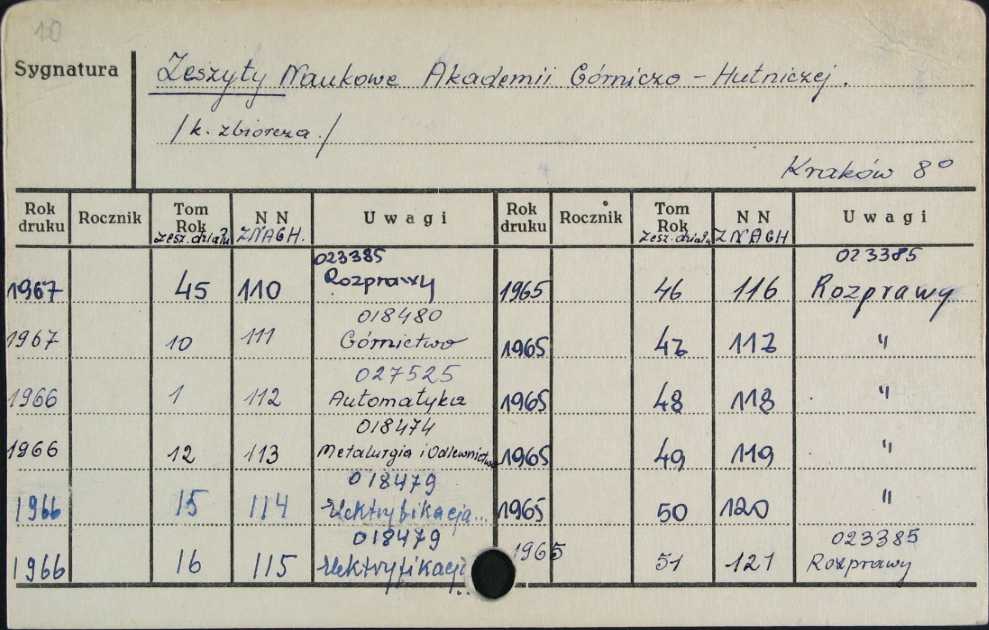 10
Sygnatura
Zeszyty Naukowe Akademii Górniczo - Hutniczej.
/k. zbiorcza./
Kraków 8°
Rok druku Rocznik Tom Rok zesz. działu N N ZNAGH. Uwagi Rok druku Rocznik Tom Rok zesz. działu N N ZNAGH Uwagi
023385 023385
1967 45 110 Rozprawy 1965 46 116 Rozprawy
018480
1967 10 111 Górnictwo 1965 47 117 "
027525
1966 1 112 Automatyka 1965 48 118 "
018474
1966 12 113 Metalurgia i Odlewnictwo 1965 49 119 "
018479
1966 15 114 Elektryfikacja... 1965 50 120 "
018479 023385
1966 16 115 Elektryfikacja.. 1965 51 121 Rozprawy